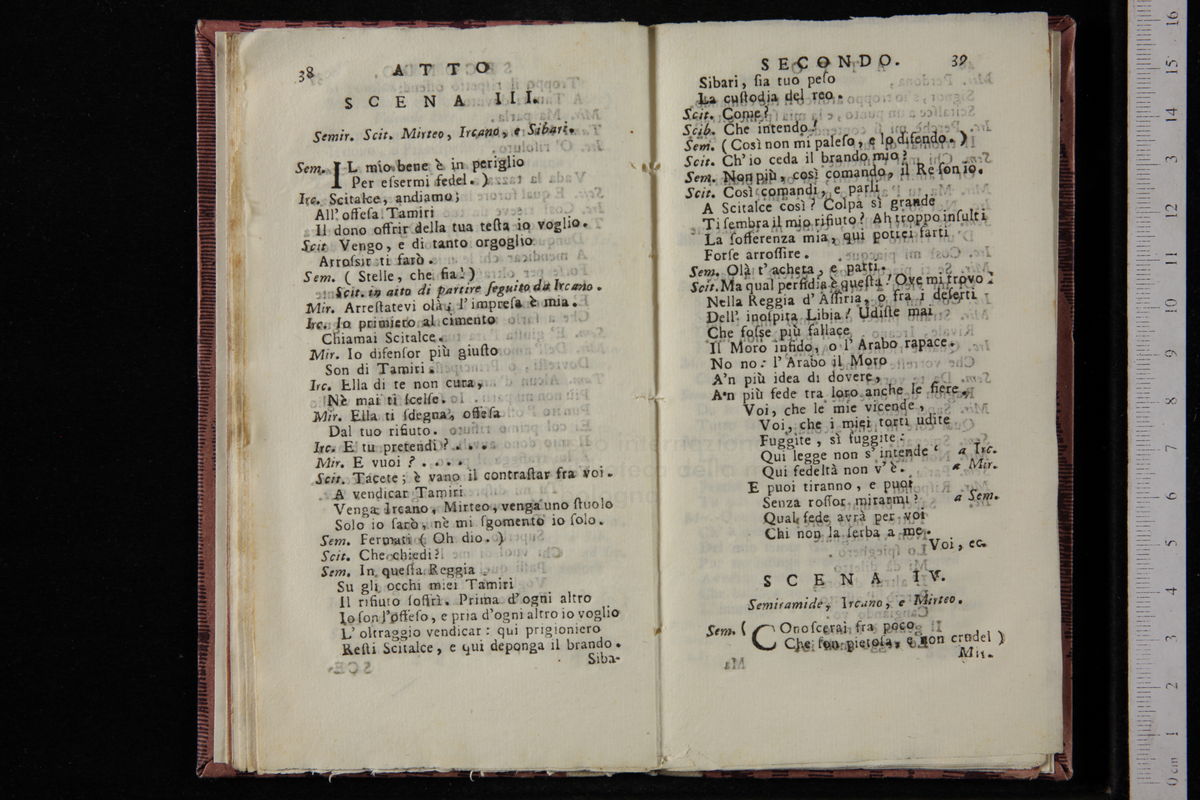 38 ATTO
SCENA III.
Semir. Scit. Mirteo, Ircano, e Sibari.
Sem. IL mio bene è in periglio
Per eſſermi fedel. )
Irc. Scitalce, andiamo;
All' offeſa Tamiri
Il dono offrir della tua teſta io voglio.
Scit Vengo, e di tanto orgoglio
Arroſſir ti farò.
Sem. ( Stelle, che fia! )
Scit. in atto di partire ſeguito da Ircano.
Mir. Arreſtatevi olà; l' impreſa è mia.
Irc. Io primiero al cimento
Chiamai Scitalce.
Mir. Io difenſor più giuſto
Son di Tamiri.
Irc. Ella di te non cura,
Nè mai ti ſcelſe.
Mir. Ella ti ſdegna, offeſa
Dal tuo rifiuto.
Irc. E tu pretendi? . . . .
Mir. E vuoi ? . . . .
Scit. Tacete; è vano il contraſtar fra voi.
A vendicar Tamiri
Venga Ircano, Mirteo, venga uno ſtuolo
Solo io ſarò, nè mi ſgomento io ſolo.
Sem. Fermati ( Oh dio. )
Scit. Che chiedi?
Sem. In queſta Reggia
Su gli occhi miei Tamiri
Il rifiuto ſoffrì. Prima d' ogni altro
Io ſon l'offeſo, e pria d'ogni altro io voglio
L' oltraggio vendicar: qui prigioniero
Reſti Scitalce, e qui deponga il brando.
Siba-
SECONDO. 39
Sibari, ſia tuo peſo
La cuſtodia del reo.
Scit. Come?
Scib. Che intendo!
Sem. ( Così non mi paleſo, e lo difendo. )
Scit. Ch' io ceda il brando mio?
Sem. Non più, così comando, il Re ſon io.
Scit. Così comandi, e parli
A Scitalce così? Colpa sì grande
Ti ſembra il mio rifiuto? Ah troppo inſulti
La ſofferenza mia, qui potrei farti
Forſe arroſſire.
Sem. Olà t' acheta, e parti.
Scit. Ma qual perfidia è queſta! Ove mi trovo?
Nella Reggia d' Aſſiria, o fra i deſerti
Dell' inoſpita Libia! Udiſte mai
Che foſſe più fallace
Il Moro infido, o l' Arabo rapace.
No no: l' Arabo il Moro
A'n più idea di dovere,
A'n più fede tra loro anche le fiere.
Voi, che le mie vicende,
Voi, che i miei torti udite
Fuggite, sì fuggite:
Qui legge non s' intende a Irc.
Qui fedeltà non v' è. a Mir.
E puoi tiranno, e puoi
Senza roſſor mirarmi? a Sem.
Qual fede avrà per voi
Chi non la ſerba a me.
Voi, ec.
SCENA IV.
Semiramide, Ircano, e Mirteo.
Sem. ( COnoſcerai fra poco
Che ſon pietoſa, e non crudel )
Mir.